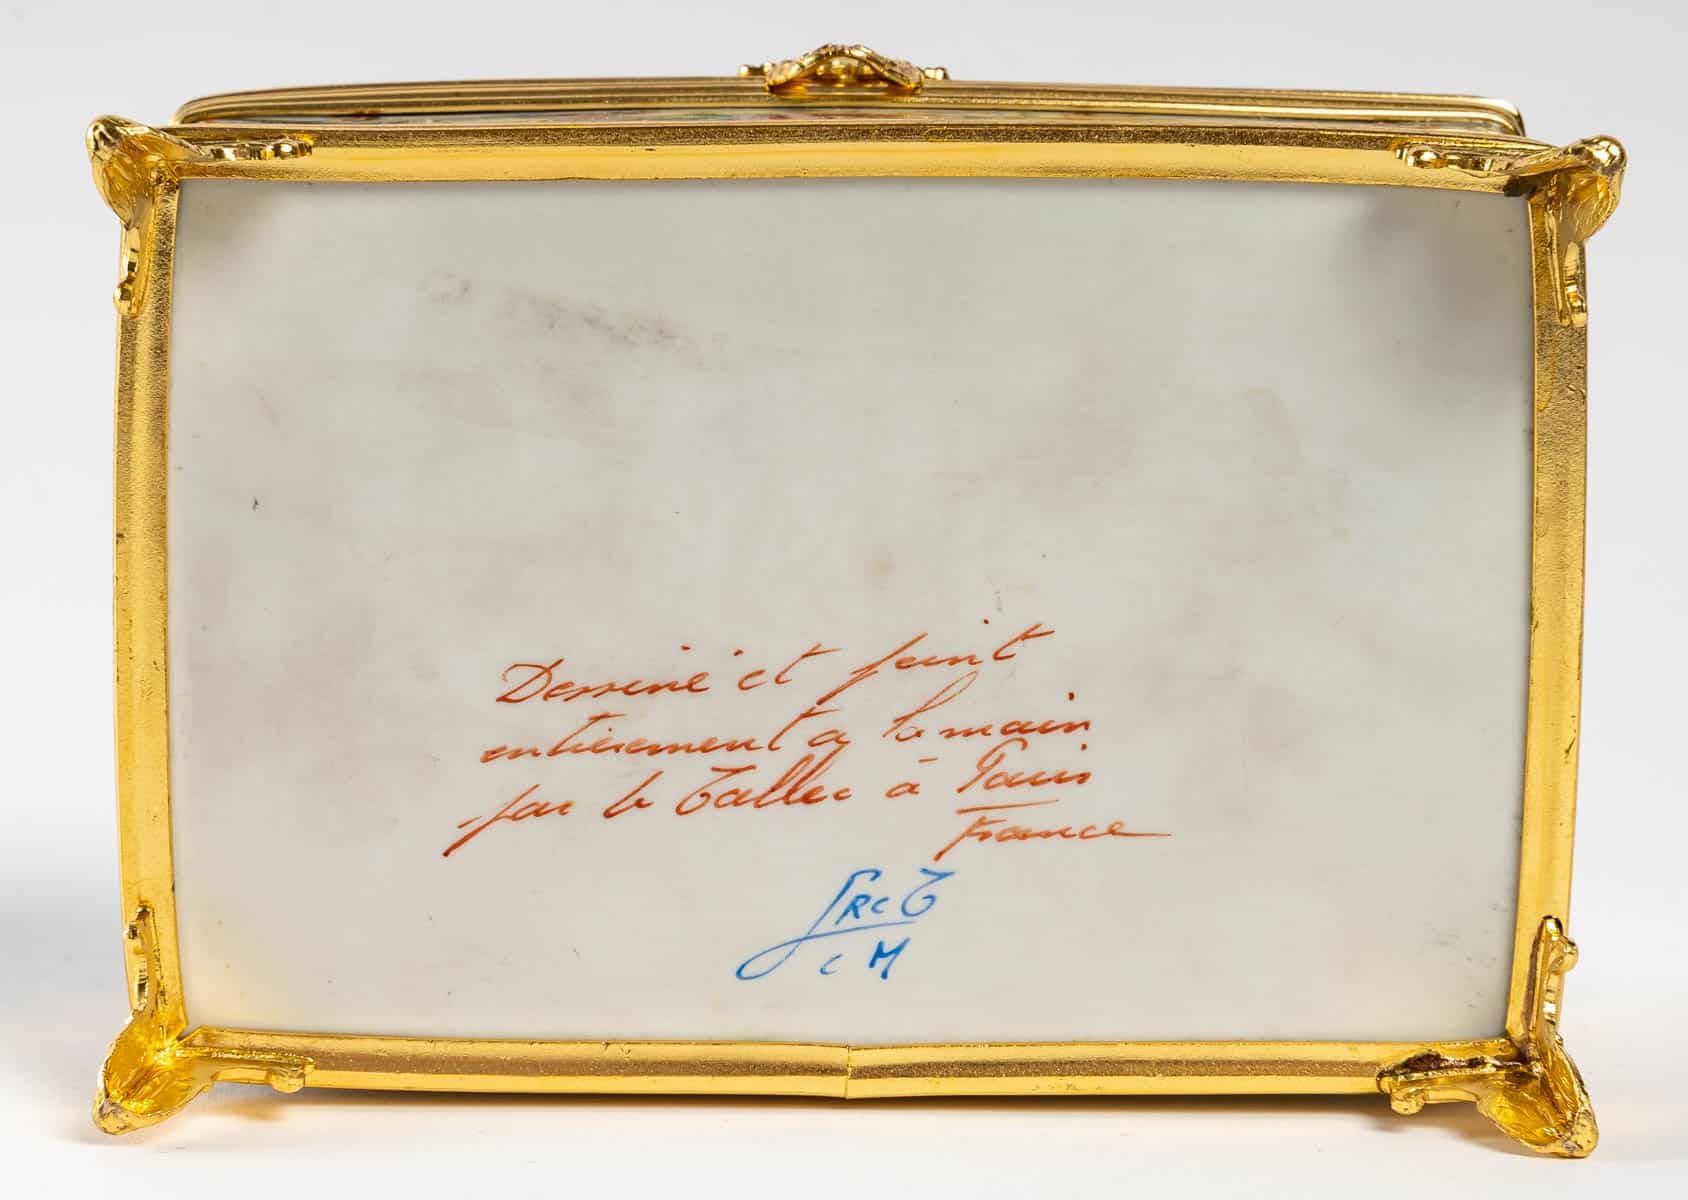 Dessiné et peint
entierement a la main
par Le Tallec à Paris
France
CM